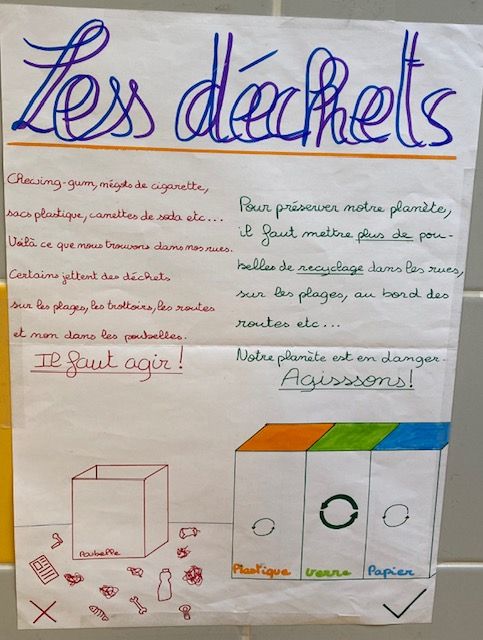 Les déchets
Chewing-gum, mégots de cigarette,
sacs plastique, canettes de soda etc...
Voilà ce que nous trouvons dans nos rues.
Certains jettent des déchets
sur les plages, les trottoirs, les routes
et non dans les poubelles.
Il faut agir !
Pour préserver notre planète,
il faut mettre plus de pou-
belles de recyclage dans les rues,
sur les plages, au bord des
routes etc...
Notre planète est en danger.
Agisssons!
Poubelle
Plastique verre Papier